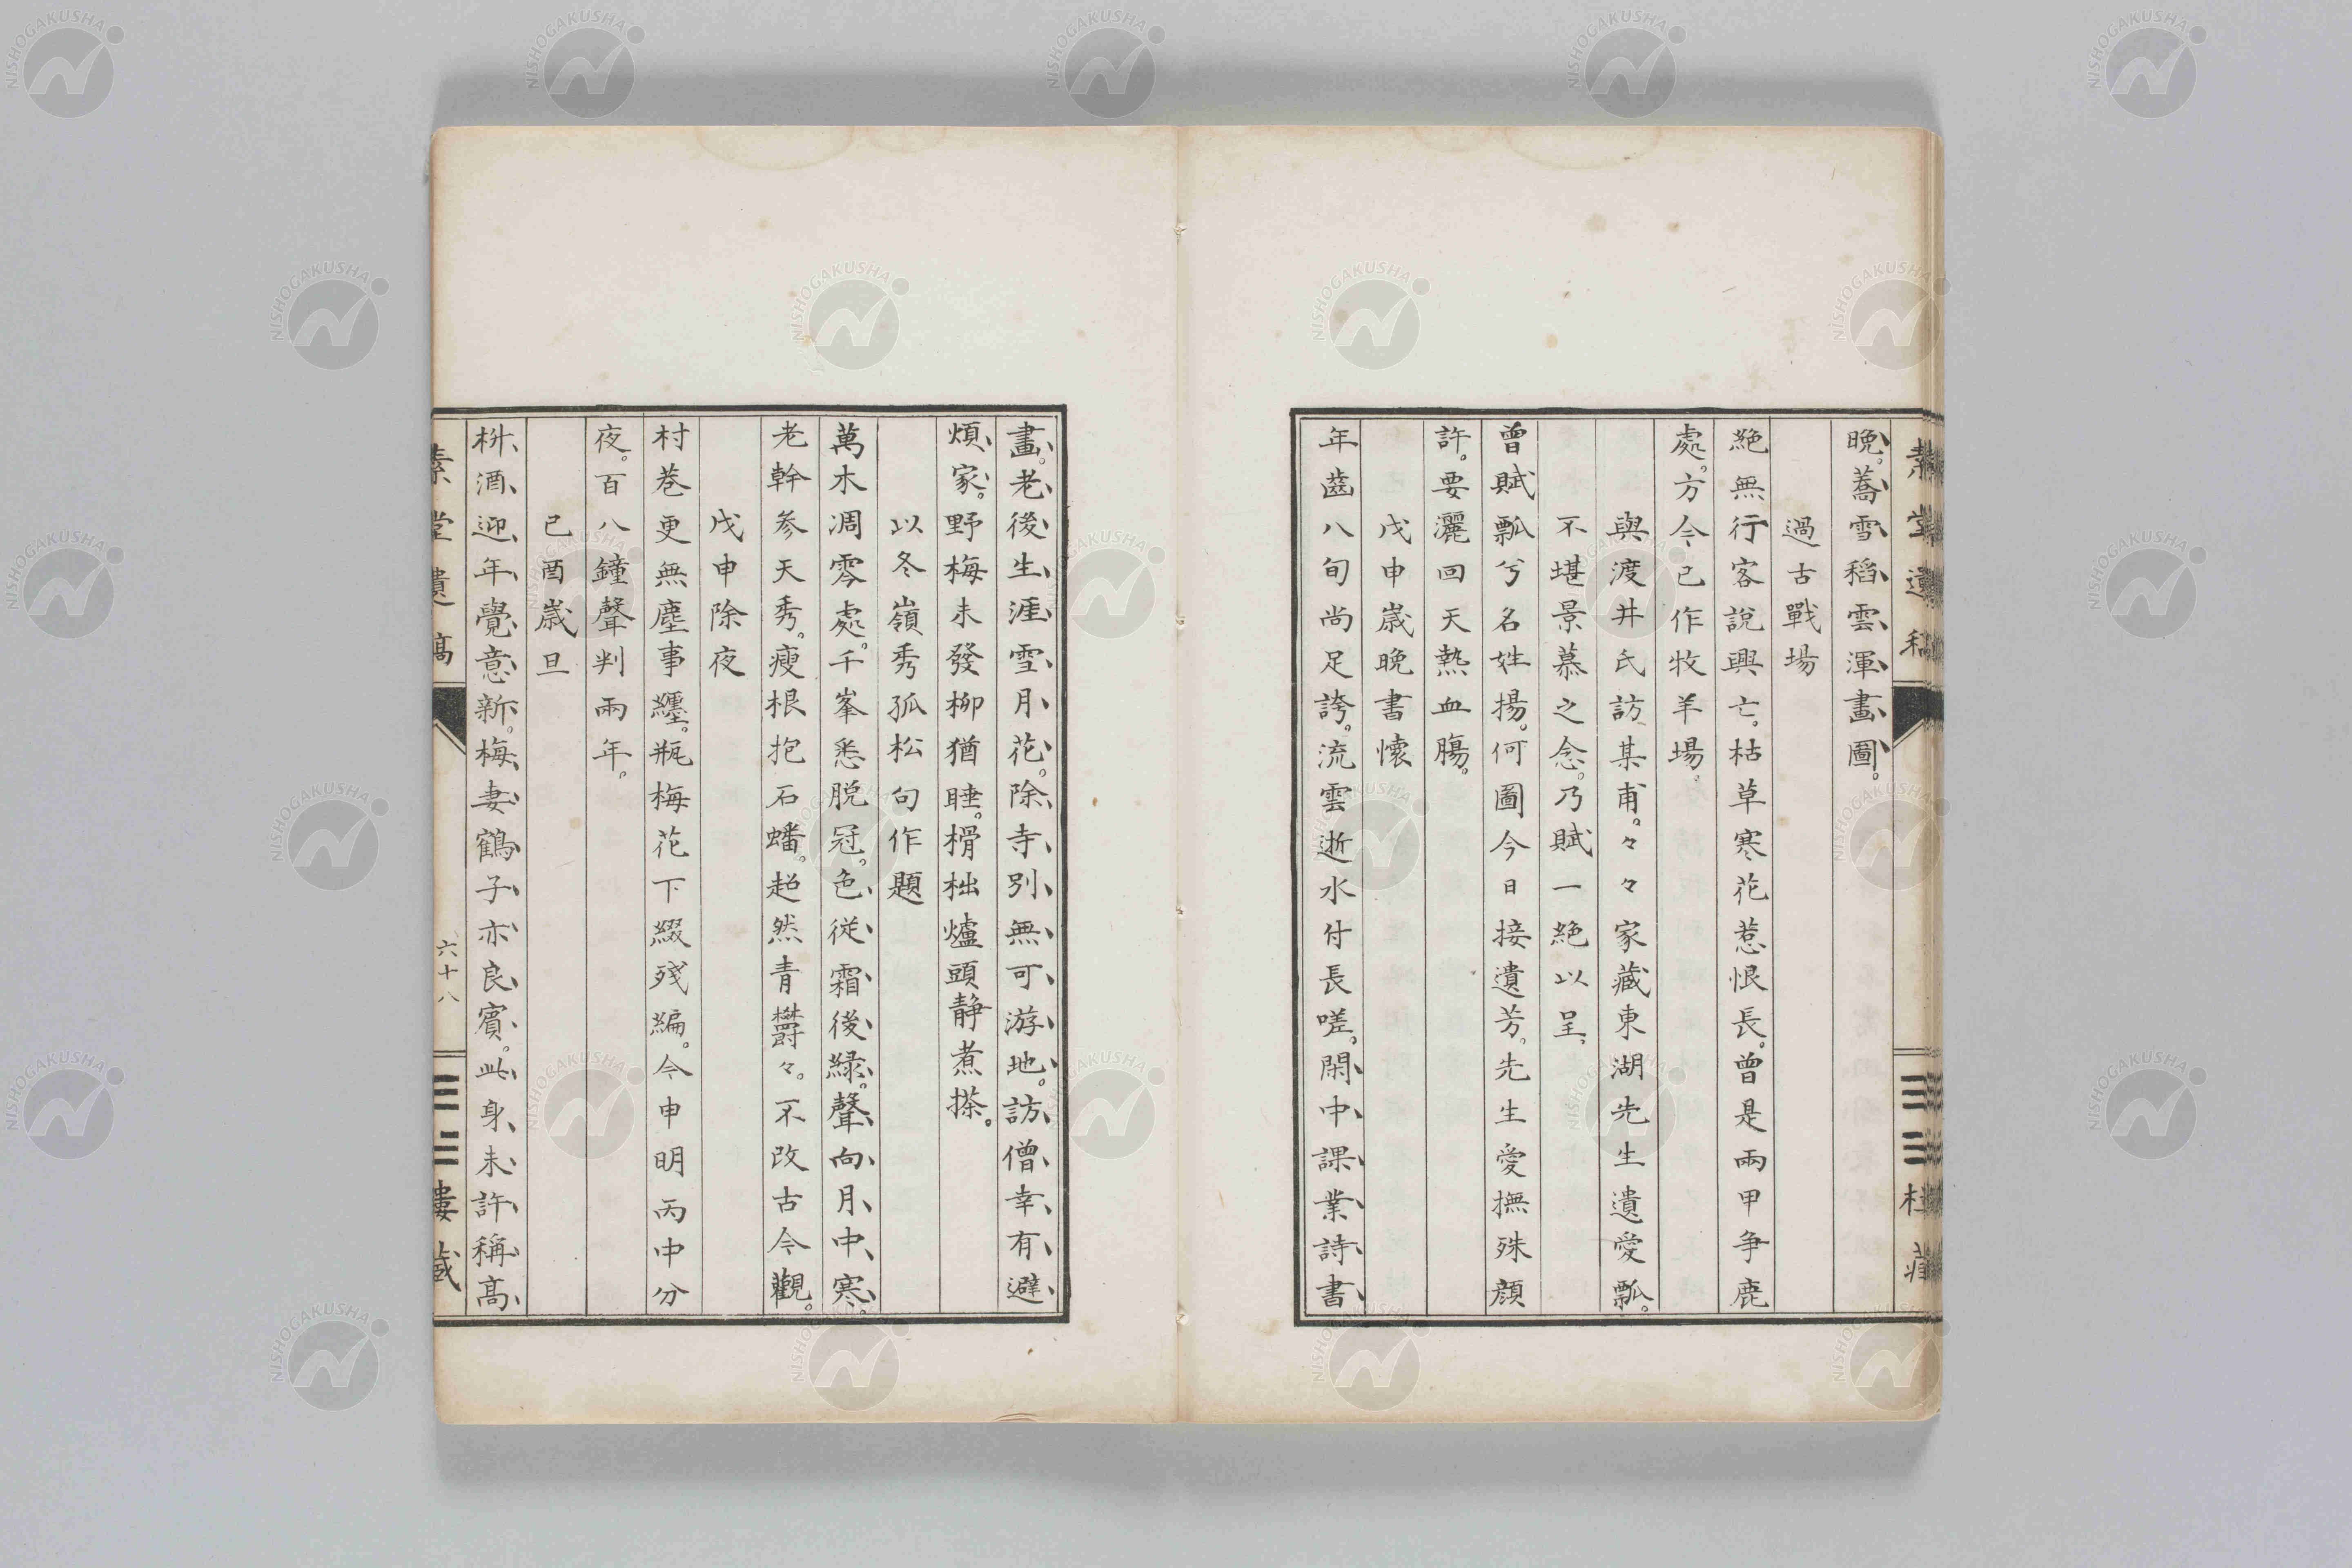 素堂遺稿
三三樓藏
晩。蕎雪稻雲渾畫圖。
過古戰場
絶無行客說興亡。枯草寒花惹恨長。曾是兩甲爭鹿
處。方今已作牧羊場。
與渡井氏訪某甫。々々家藏東湖先生遺愛瓢。
不堪景慕之念。乃賦一絶以呈、
曾賦瓢兮名姓揚。何圖今日接遺芳。先生愛撫殊顔
許。要灑回天熱血膓。
戊申歲晩書懷
年齒八旬尚足誇。流雲逝水付長嗟。閑中課業詩書
畫。老後生涯雪月花。除寺別無可游地。訪僧幸有避
煩家。野梅未發柳猶睡。榾柮爐頭靜煮搽。
以冬嶺秀孤松句作題
萬木凋零處。千峯悉脱冠。色從霜後綠。聲向月中寒。
老幹参天秀。瘦根抱石蟠。超然青欝々。不改古今觀。
戊申除夜
村巷更無塵事纒。瓶梅花下綴殘編。今申明丙中分
夜。百八鐘聲判兩年。
己酉歲旦
椕酒迎年覺意新。梅妻鶴子亦良賓。此身未許稱高
素堂遺稿
六十八
三三樓藏
NISHOGAKUSHA